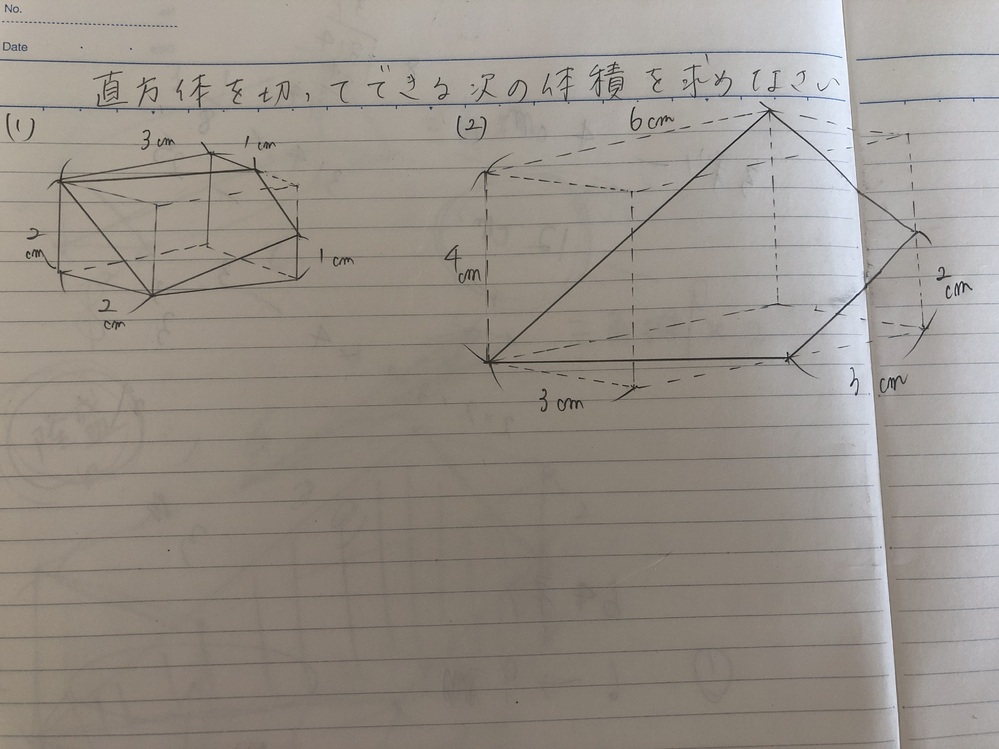 No.
Date
直方体を切ってできる次の体積を求めなさい
(1)
3cm
1cm
2
cm
1cm
2
cm
(2)
6cm
4
cm
2
cm
3cm
3 cm